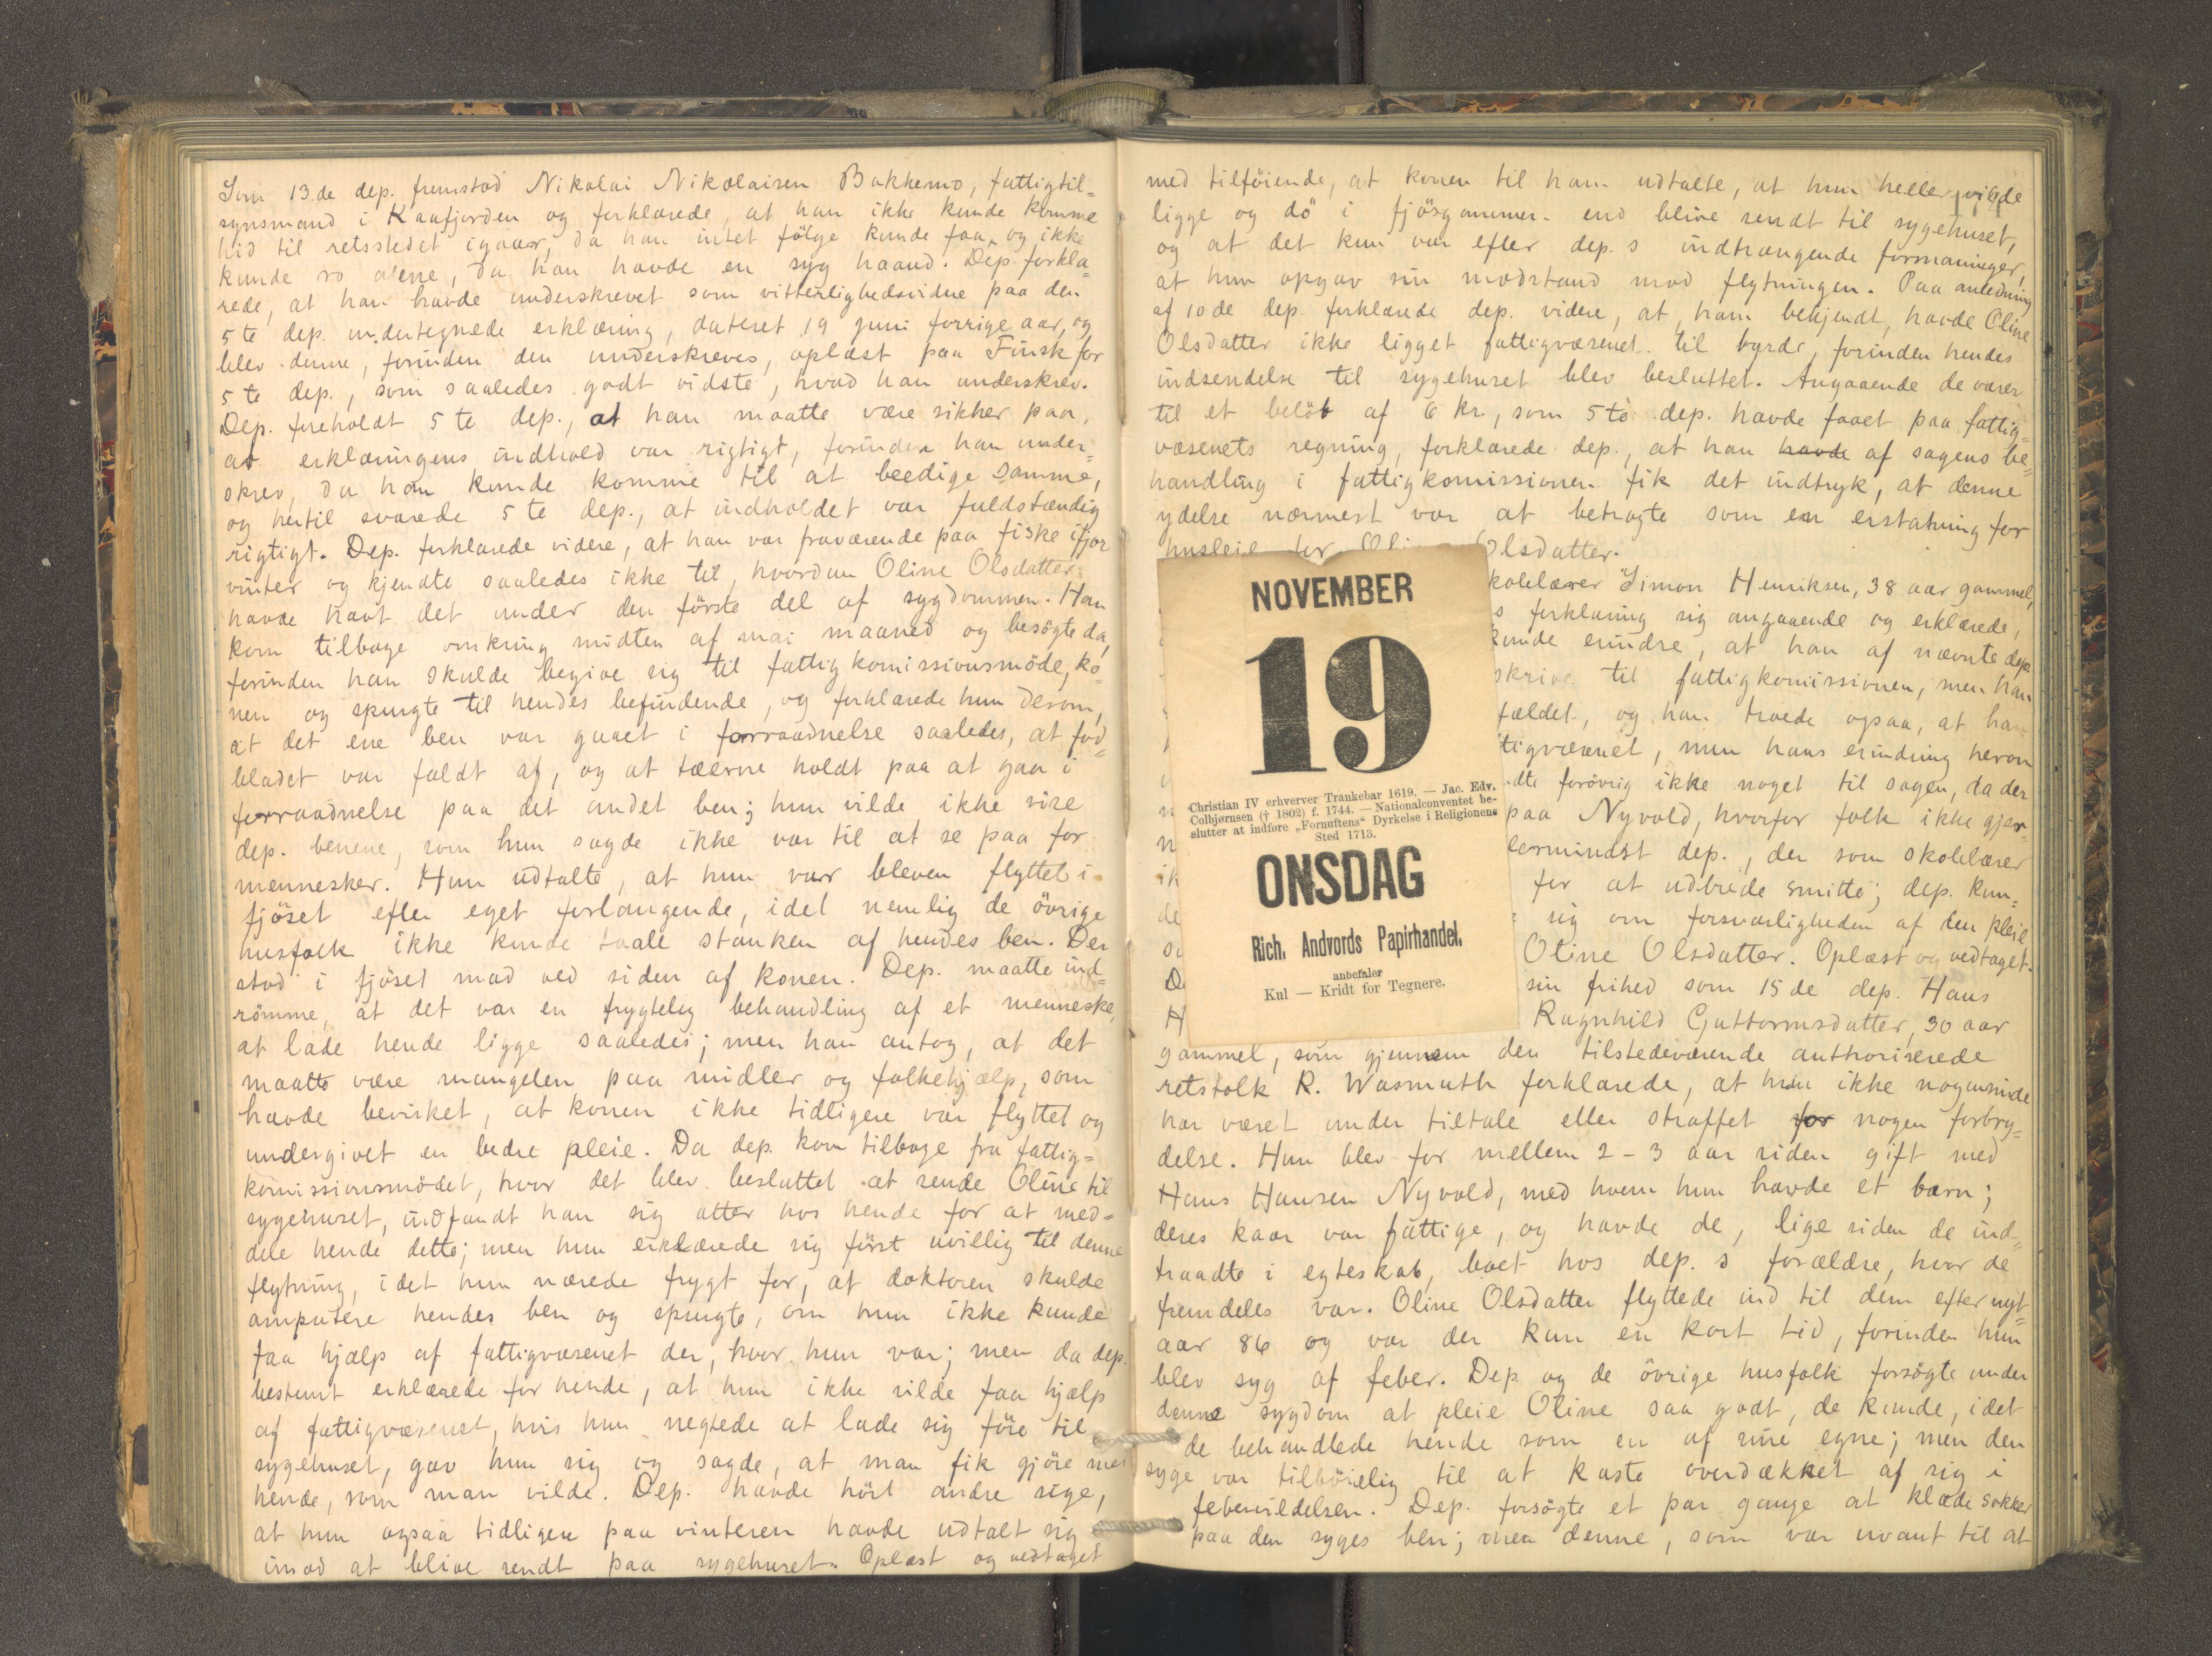 Som 13.de dep. fremstod Nikolai Nikolaisen Bakkemo, fattigtil=
synsmand i Kaafjorden og forklarede, at han ikke kunde komme
hid til retsstedet igaar, da han intet følge kunde faa og ikke
kunde ro alene, da han havde en syg haand. Dep. forkla=
rede, at han havde underskrevet som vitterlighedsvidne paa den
5te dep. undertegnede erklæring, dateret 19 juni forrige aar, og
blev denne, forinden den underskreves, oplæst paa Finsk for
5te dep., som saaledes godt vidste, hvad han underskrev.
Dep. foreholdt 5te dep., at han maatte være sikker paa,
at erklæringens indhold var rigtigt, forinden han under=
skrev, da han kunde komme til at beedige samme,
og hertil svarede 5te dep., at indholdet var fuldstændig
rigtigt. Dep. forklarede videre, at han var fraværende paa fiske ifjor
vinter og kjendte saaledes ikke til, hvordan Oline Olsdatter
havde havt det under den første del af sygdommen. Han
kom tilbage omkring midten af mai maaned og besøgte da,
forinden han skulde begive sig til fattigkomissionsmöde, ko=
nen og spurgte til hendes befindende, og forklarede hun derom,
at det ene ben var gaaet i forraadnelse saaledes, at fod=
bladet var faldt af, og at tæerne holdt paa at gaa i
forraadnelse paa det andet ben; hun vilde ikke vise
dep. benene, som hun sagde ikke var til at se paa for
mennesker. Hun udtalte, at hun var bleven flyttet i
fjöset efter eget forlangende, idet nemlig de övrige
husfolk ikke kunde taale stanken af hendes ben. Der
stod i fjöset mad ved siden af konen. Dep. maatte ind=
römme, at det var en frygtelig behandling af et menneske,
at lade hende ligge saaledes; men han antog, at det
maatte være mangelen paa midler og folkehjælp, som
havde bevirket, at konen ikke tidligere var flyttet og
undergivet en bedre pleie. Da dep. kom tilbage fra fattig=
komissionsmödet, hvor det blev besluttet at sende Oline til
sygehuset, indfandt han sig atter hos hende for at med=
dele hende dette; men hun erklærede sig först uvillig til denne
flytning, idet hun nærede frygt for, at doktoren skulde
amputere hendes ben og spurgte, om hun ikke kunde
faa hjælp af fattigvæsenet der, hvor hun var; men da dep.
bestemt erklærede for hende, at hun ikke vilde faa hjælp
af fattigvæsenet, hvis hun negtede at lade sig före til
sygehuset, gav hun sig og sagde, at man fik gjöre med
hende, som man vilde. Dep. havde hört andre sige,
at hun ogsaa tidligere paa vinteren havde udtalt sig
imod at blive sendt paa sygehuset. Oplæst og vedtaget
med tilföiende, at konen til ham udtalte, at hun heller vilde
ligge og dö i fjösgammen end blive sendt til sygehuset,
og at det kun var efter dep.s indtrængende formaninger,
at hun opgav sin modstand mod flytningen. Paa anledning
af 10de dep. forklarede dep. videre, at, ham bekjendt, havde Oline
Olsdatter ikke ligget fattigvæsenet til byrde, forinden hendes
indsendelse til sygehuset blev besluttet. Angaaende de varer
til et belöb af 6 kr., som 5te dep. havde faaet paa fattig=
væsenets regning, forklarede dep., at han havde af sagens be=
handling i fattigkomissionen fik det indtryk, at denne
ydelse nærmest var at betragte som en erstatning for
husleie for Oline Olsdatter.
kolelærer Simon Henriksen, 38 aar gammel,
s forklaring sig angaaende og erklærede,
kunde erindre, at han af nævnte dep.
skrive til fattigkomissionen, men han
fældet, og han troede ogsaa, at han
tigvæsenet, men hans erindring herom
ndte forövrig ikke noget til sagen, da der
paa Nyvold, hvorfor folk ikke gjer=
lermindst dep., der som skolelærer
for at udbrede smitte; dep. kun=
sig om forsvarligheden af den pleie
Oline Olsdatter. Oplæst og vedtaget.
sin frihed som 15de dep. Hans
Ragnhild Guttormsdatter, 30 aar
gammel, som gjennem den tilstedeværende authoriserede
retstolk R. Wasmuth forklarede, at hun ikke nogensinde
har været under tiltale eller straffet for nogen forbry=
delse. Hun blev for mellem 2 - 3 aar siden gift med
Hans Hansen Nyvold, med hvem hun havde et barn;
deres kaar var fattige, og havde de, lige siden de ind=
traadte i egteskab, boet hos dep.s forældre, hvor de
fremdeles var. Oline Olsdatter flyttede ind til dem efter nyt=
aar 86 og var der kun en kort tid, forinden hun
blev syg af feber. Dep. og de övrige husfolk forsögte under
denne sygdom at pleie Oline saa godt, de kunde, idet
de behandlede hende som en af sine egne; men den
syge var tilböielig til at kaste overdækket af sig i
febervildelsen. Dep. forsögte et par gange at klæde sokker
paa den syges ben; men denne, som var uvant til at
NOVEMBER
19
Christian IV erhverver Trankebar 1619. — Jac. Edv.
Colbjørnsen († 1802) f. 1744. — Nationalconventet be-
slutter at indføre „Fornuftens“ Dyrkelse i Religionens
Sted 1713.
ONSDAG
Rich. Andvords Papirhandel.
anbefaler
Kul — Kridt for Tegnere.